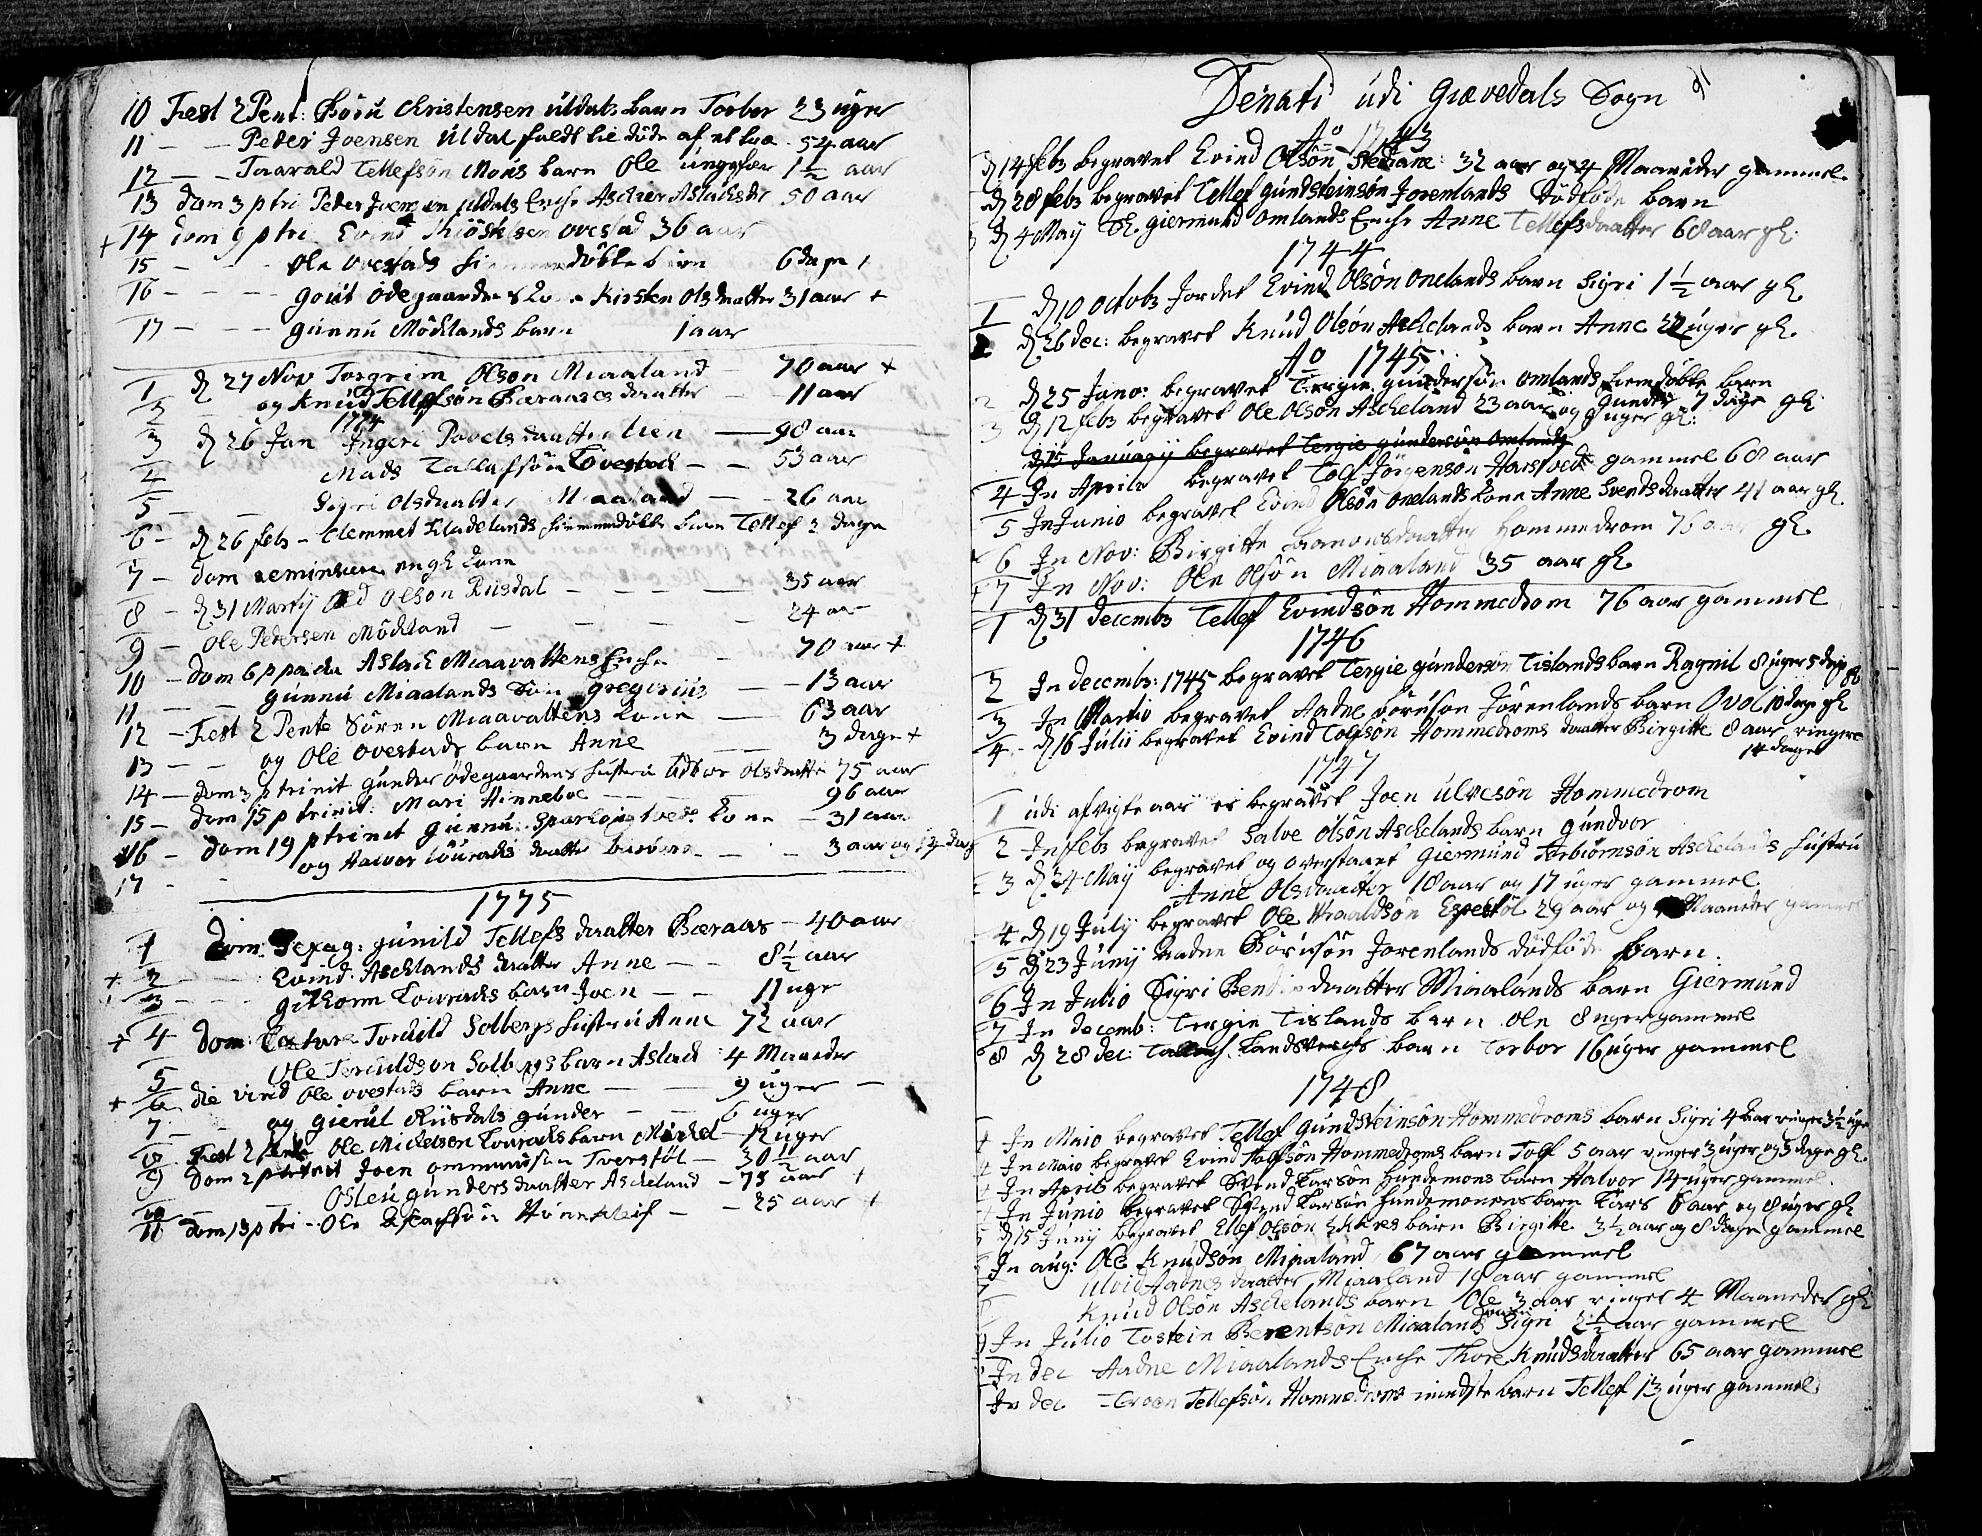 10 Fest 2 Pent: Börü Christensen Uldals barn Torbor 23 uger
11 — — Peder Joensen Uldal faldt til döde af et træ 54 aar
12 — — Taarald Tellefsön Mois barn Ole ungefær 1½ aar
13 dom 3 p tri Peder Joensen Uldals Enche Aslachsdr 50 aar
14 dom 9 p tri Evind ovestad 36 aar
15 — — Ole ovestads hiemmedöbte barn 6 dage
16 — — — gout ödegaardens Kone Kirsten Olsdaatter 31 aar +
17 — — — gunnu Möcklands barn 1 aar
1 d 27 Nov Torgrim Olson Miaaland 70 aar +
2 og Knud Tellefson Bæraases daatter — 11 aar
1774
3 d 26 Jan Ingeri Povels daatter — 98 aar
4 Mads Tallafsön Ovestad — — 53 aar
5 — — Sigri Olsdaatter Miaaland — — 26 aar
6 — d 26 febr — Clemmet Kladelands hiemmedöbt barn Tellef 3 dage
7 — dom reminiscere en gl Kone
8 — d 31 Martij Olson Riisdal — — — — 35 aar
9 — Ole Pedersen Möckland — — — — 24 aar
10 — dom 6 p pascha Aslach Miaavattens Enche — 70 aar +
11 — — gunnu Miaalands Sön gregorius — — 13 aar
12 — Fest 2 Pente Sören Miaavattens Kone — 63 aar
13 — — og Ole Ovestads barn Anne — 3 dage +
14 — dom 3 p trinit gunder Ödegaardens hustru Olsdaatter 75 aar
15 — dom 15 p trinit: Mari Hinneboe — — — 96 aar
16 — dom 19 p trinit gunnu Kone — 31 aar
17 — — og Halvor Louraas daatter — — 3 aar og 14 dag
1775
1 Dom: Sexag: gunild Tellefs daatter Bæraas — 40 aar
+ 2 — — Evind Aschlands daatter Anne — — 8½ aar
3 — — — githorm Louraas barn Joen — — 11 uge
+ 4 Dom: Tordild Solbergs hustru Anne 72 aar
5 Ole Torildson Solbergs barn Aslach 4 Maaneder
+ 6 die vind Ole ovestads barn Anne — — 9 uger —
7 — — og gierul Riisdals gunder — — 6 uger
8 Fest 2 Pente Ole Michelsen Louraas barn Michel — 12 uger
9 Dom 2 p trinit Joen ommundsen Tverstöl — 30½ aar
10 — — Osleu gunders daatter Ascheland — 75 aar +
11 dom 13 p tri — Ole Hönneklef — — 25 aar +
Denati udi Giævedals Sogn
91
Ao 1743
d 14 febr begravet Evind Olson : 32 aar og 4 Maaneder gammel
d 28 febr begravet Tellef gundsteinsön Jorenlands Dödföde barn
d 4 May giermund omlands Enche Anne Tellefsdaatter 68 aar gl:
1744
1 d 10 octobr Jordet Evind Olsön onelands barn Sigri 1½ aar gl
2 d 26 dec: begravet Knud Olsön Aschelands barn Anne 22 uger gl.
Ao 1745
2 d 25 Janv: begravet Tergie gundersön omlands hiemdöbte barn gunder 7 dage gl:
3 d 12 febr begravet Ole Olsön Ascheland 23 aar og 9 uger gl:
d 15 Januarij begravet Tergie gundersön omlands
4 In Aprili begravet Tolf Jörgensön Harstvedt gammel 68 aar
5 In Junio begravet Evind Olsön onelands kone Anne Svends daatter 41 aar gl
6 In Nov: Birgitte Hommedrom 76 aar gl
7 In Nov: Ole Olsön Miaaland 35 aar gl
1 d 31 decembr Tellef Evindsön Hommedrom 76 aar gammel
1746
2 In decembr: 1745 begravet Tergie gundersön Tislands barn Ragnil 8 uger 5 dage gl
3 In Martio begravet Aadne börüson Jörenlands barn Ovol 10 dage gl
4 — d 16 Julii begravet Evind Tolfsön Hommedroms daatter Birgitte 8 aar ringere
14 dage
1747
1 udi afvigte aar er begravet Joen Ulvesön Hommedrom
2 In febr begravet Salve Olsön Aschelands barn gundvor
3 d 24 May begravet og overstaaet Giermund Torbiörnsön Aschelands hustru
Anne Olsdaatter 18 aar og 17 uger gammel.
4 d 19 July begravet Ole Espestöl 29 aar og Maaneder gammel
5 d 23 Junij Aadne Börüsön Jorenlands dödföde barn:
6 In Julio Sigri daatter Miaalands barn Giermund
7 In decemb: Tergie Tislands barn Ole 8 uger gammel
8 d 28 dec: Landsverchs barn Torbor 16 uger gammel
1748
In Maio begravet Tellef gundsteinsön Hommedroms barn Sigri 4 aar ringer 3½ uge
In Maio begravet Evind Tolfsön Hommedroms barn Tolf 5 aar ringer 3 uger og 3 dage gl.
In Aprili begravet Svend Larsön Hundemons barn Halvor 14 uger gammel
In Junio begravet Svend Larsön Hundemonens barn Lars 6 aar og 8 uger gl
5 d 15 Junij begravet Ellef Olsön barn Birgitte 3½ aar og 8 dage gammel
In aug: Ole Knudsön Miaaland 67 aar gammel
Ulvid Aadnes daatter Miaaland 18 aar gammel
Knud Olsön Aschelands barn Ole 3 aar ringer 4 Maaneder gl
9 In Julio Tostein Berentsön Miaalands Sigri 2½ aar gammel
In dec Aadne Miaalands Enche Thore Knudsdaatter 65 aar gammel
In dec Tellefsön Hommedroms mindste barn Tellef 13 uger gammel